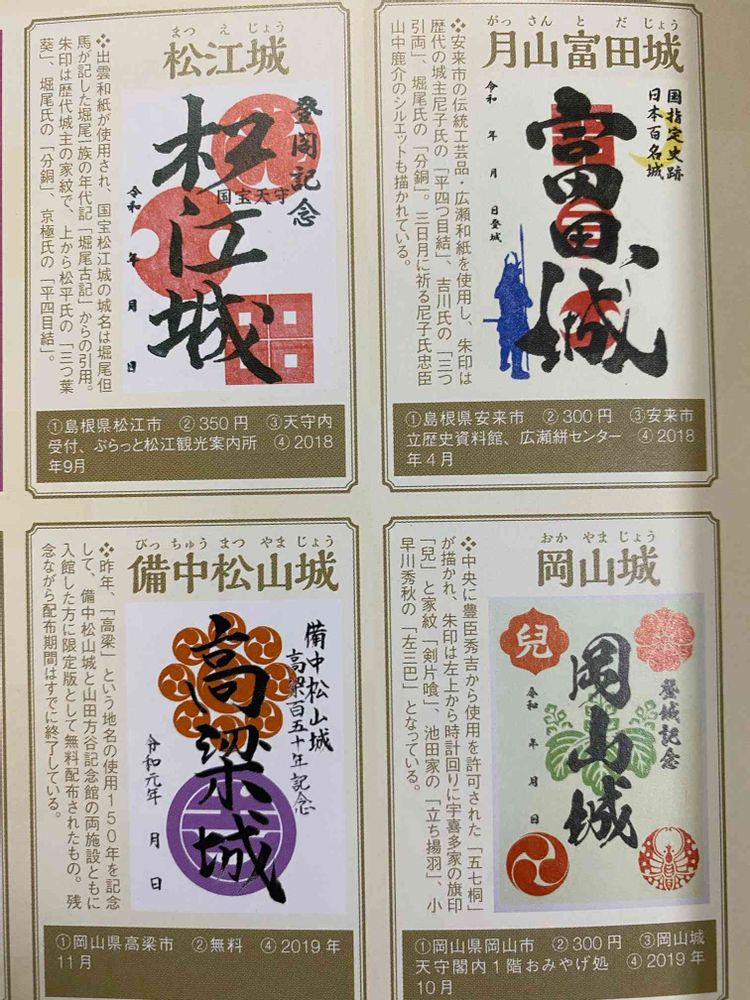 まつえじょう
松江城
❖出雲和紙が使用され、国宝松江城の城名は堀尾但
馬が記した堀尾一族の年代記「堀尾古記」からの引用。
朱印は歴代城主の家紋で、上から松平氏の「三つ葉
葵」、堀尾氏の「分銅」、京極氏の「平四目結」。
登閣記念
国宝天守
松江城
令和 年 月 日
①島根県松江市 ②350円 ③天守内
受付、ぶらっと松江観光案内所 ④2018
年9月
がっさんとだじょう
月山富田城
❖安来市の伝統工芸品・広瀬和紙を使用し、朱印は
歴代の城主尼子氏の「平四つ目結」、吉川氏の「三つ
引両」、堀尾氏の「分銅」。三日月に祈る尼子氏忠臣
山中鹿介のシルエットも描かれている。
国指定史跡
日本百名城
富田城
令和 年 月 日登城
①島根県安来市 ②300円 ③安来市
立歴史資料館、広瀬絣センター ④2018
年4月
びっちゅうまつやまじょう
備中松山城
❖昨年、「高梁」という地名の使用150年を記念
して、備中松山城と山田方谷記念館の両施設ともに
入館した方に限定版として無料配布されたもの。残
念ながら配布期間はすでに終了している。
備中松山城
高梁百五十年記念
高梁城
令和元年 月 日
①岡山県高梁市 ②無料 ④2019年
11月
おかやまじょう
岡山城
❖中央に豊臣秀吉から使用を許可された「五七桐」
が描かれ、朱印は左上から時計回りに宇喜多家の旗印
「兒」と家紋「剣片喰」、池田家の「立ち揚羽」、小
早川秀秋の「左三巴」となっている。
兒
登城記念
岡山城
令和 年 月 日
①岡山県岡山市 ②300円 ③岡山城
天守閣内1階おみやげ処 ④2019年
10月